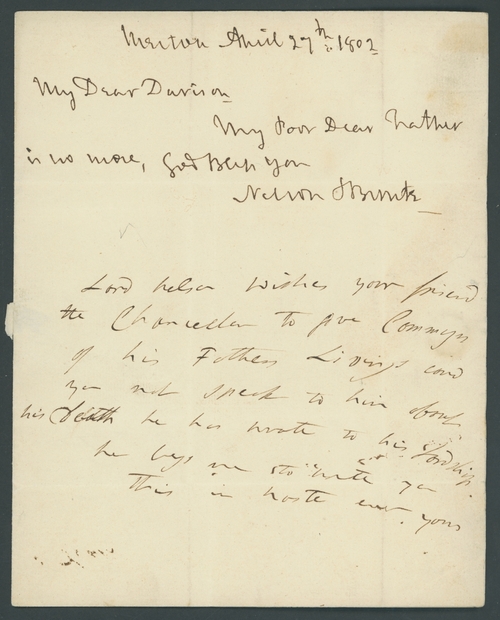 Merton April 27th: 1802
My Dear Davison
My Poor Dear Father
is no more, God Bless you
Nelson & Bronte
Lord Nelson wishes your friend
the Chancellor to give Commyn
of his Fathers Livings could
you not speak to him about
his Death he has wrote to his Lordship.
he begs me to write you
this in haste ever yours